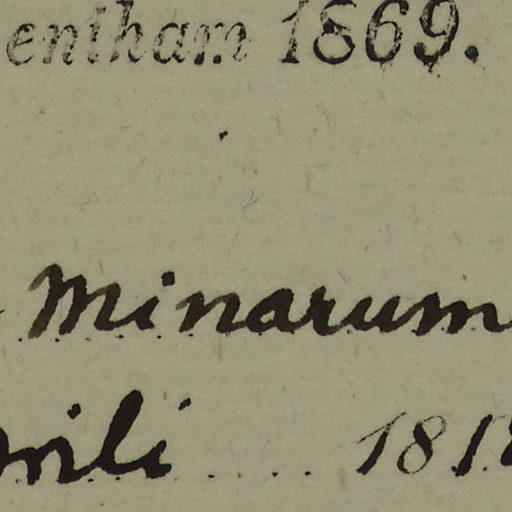 entham 1869.
Minarum
rili 181